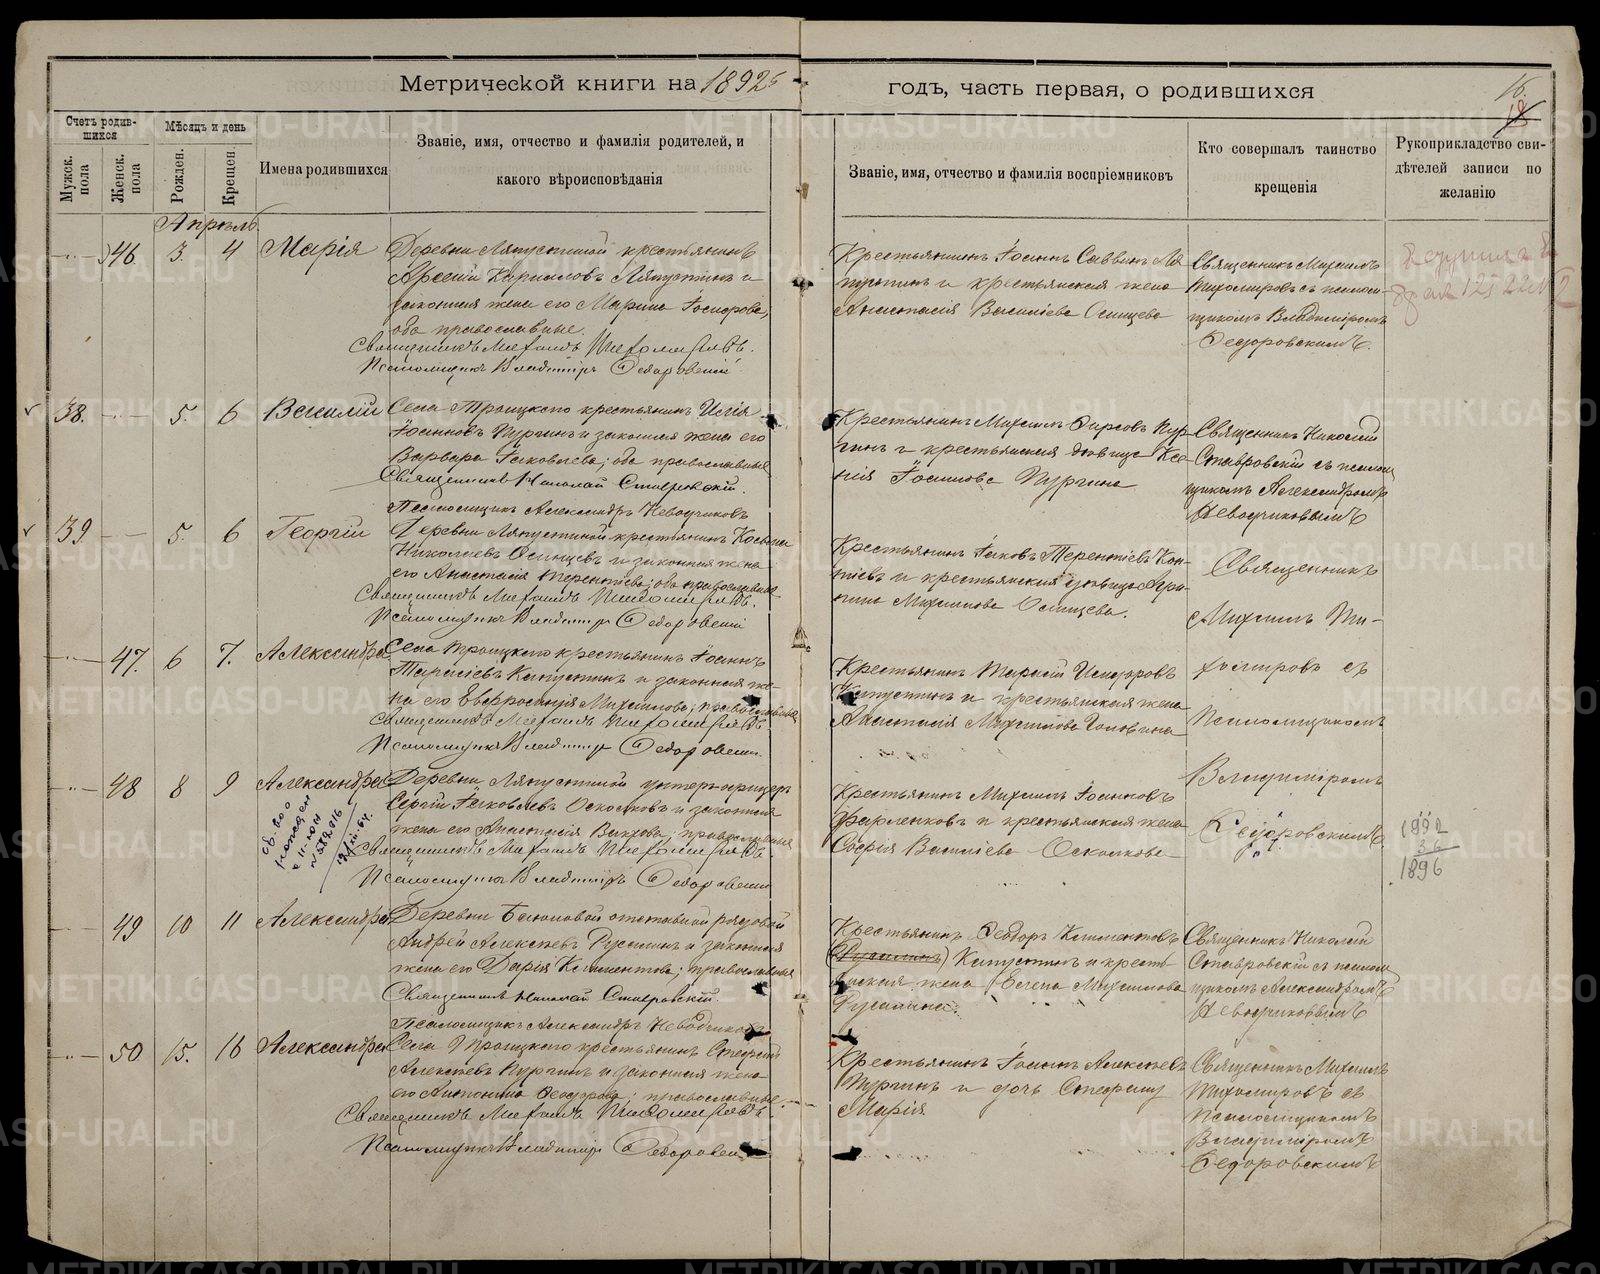 Метрической книги на 1892 годъ, часть первая, о родившихся
16.
Счетъ родив-
шихся
Мѣсяцъ и день
Мужск. пола
Женск. пола
Рожден.
Крещен.
Имена родившихся
Званіе, имя, отчество и фамилія родителей, и
какого вѣроисповѣданія
Званіе, имя, отчество и фамилія воспріемниковъ
Кто совершалъ таинство
крещенія
Рукоприкладство сви-
дѣтелей записи по
желанію
Апрѣль
46. 3. 4 Марія
Деревни Ляпустиной крестьянинъ
Арсеній Ляпустинъ и
законная жена его Марина
оба православные.
Священникъ Михаилъ Тихомировъ.
Псаломщикъ Владиміръ Федоровскій
Крестьянинъ Іоаннъ Саввинъ Ля-
пустинъ и крестьянская жена
Анастасія Василіева Осинцева
Священникъ Михаилъ
Тихомировъ съ псалом-
щикомъ Владиміромъ
Федоровскимъ.
38. 5. 6 Василій
Села Троицкаго крестьянинъ Илія
Іоанновъ Пургинъ и законная жена его
Варвара Іаковлева; оба православные
Священникъ Николай Ставровскій.
Псаломщикъ Александръ Неводчиковъ
Крестьянинъ Михаилъ Фирсовъ Пур-
гинъ и крестьянская дѣвица Ксе-
нія Іоаннова Пургина
Священникъ Николай
Ставровскій съ псалом-
щикомъ Александромъ
Неводчиковымъ
39 5. 6 Георгій
Деревни Ляпустиной крестьянинъ Косьма
Николаевъ Осинцевъ и законная жена
его Анастасія Терентіева; оба православные
Священникъ Михаилъ Тихомировъ.
Псаломщикъ Владиміръ Федоровскій
Крестьянинъ Іаковъ Терентіевъ
и крестьянская дѣвица
Михаилова Осинцева.
Священникъ
Михаилъ Ти-
хомировъ съ
Псаломщикомъ
Владиміромъ
Федоровскимъ.
47. 6 7. Александра
Села Троицкаго крестьянинъ Іоаннъ
Тарасіевъ Капустинъ и законная же-
на его Евфросинія Михаилова; православные
Священникъ Михаилъ Тихомировъ.
Псаломщикъ Владиміръ Федоровскій.
Крестьянинъ Тарасій Исидоровъ
Капустинъ и крестьянская жена
Анастасія Михаилова Головина
48 8 9 Александра
Деревни Ляпустиной унтеръ-офицеръ
Сергій Іаковлевъ Осколковъ и законная
жена его Анастасія; православные
Священникъ Михаилъ Тихомировъ.
Псаломщикъ Владиміръ Федоровскій
Крестьянинъ Михаилъ Іоанновъ
и крестьянская жена
Софія Василіева Осколкова
1896
49 10 11 Александра
Деревни отставной рядовой
Андрей Алексѣевъ Русалинъ и законная
жена его Дарія Климентова; православные
Священникъ Николай Ставровскій.
Псаломщикъ Александръ Неводчиковъ
Крестьянинъ Феодоръ Климентовъ
Капустинъ и кресть-
янская жена Елена Михаилова
Священникъ Николай
Ставровскій съ псалом-
щикомъ Александромъ
Неводчиковымъ
50 15. 16 Александра
Села Троицкаго крестьянинъ Стефанъ
Алексѣевъ Пургинъ и законная жена
его Антонина Феодорова; православные.
Священникъ Михаилъ Тихомировъ
Псаломщикъ Владиміръ Федоровскій
Крестьянинъ Іоаннъ Алексѣевъ
Пургинъ и дочь
Марія
Священникъ Михаилъ
Тихомировъ съ
Псаломщикомъ
Владиміромъ
Федоровскимъ
METRIKI.GASO-URAL.RU